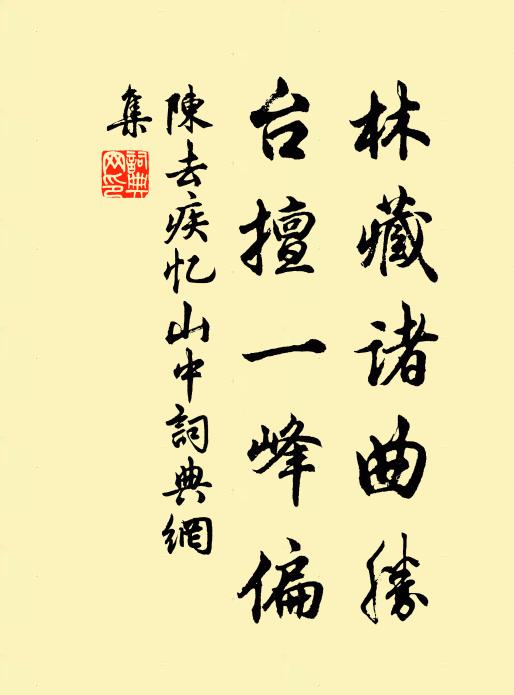 林藏诸曲勝
台擅一峰偏
陳去疾忆山中詞典網
集
詞典
网印